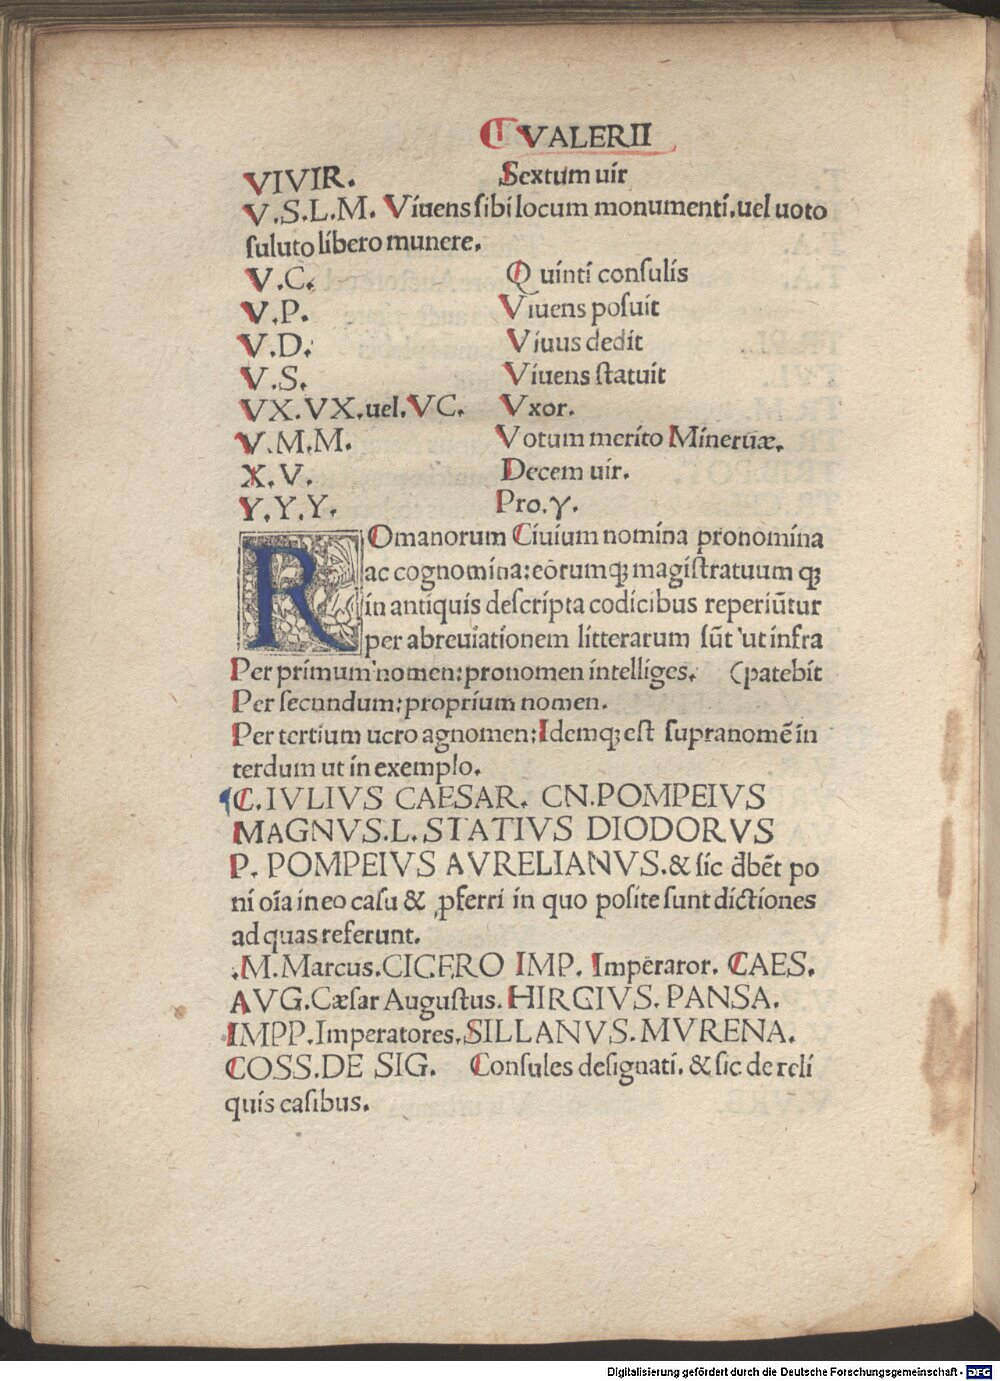 VALERII
VIVIR. Sextum uir
V.S.L.M. Viuens sibi locum monumenti.uel uoto
suluto libero munere.
V.C. Quinti consulis
V.P. Viuens posuit
V.D. Viuus dedit
V.S. Viuens statuit
VX.VX.uel.VC. Vxor.
V.M.M. Votum merito Mineruæ.
X.V. Decem uir.
Y.Y.Y. Pro.γ.
ROmanorum Ciuium nomina pronomina
ac cognomina:eōrumq; magistratuum q;
in antiquis descripta codicibus reperiūtur
per abreuiationem litterarum sūt ut infra
Per primum nomen:pronomen intelliges. (patebit
Per secundum:proprium nomen.
Per tertium uero agnomen:Idemq; est supranomē in
terdum ut in exemplo.
C.IVLIVS CAESAR. CN.POMPEIVS
MAGNVS.L.STATIVS DIODORVS
P. POMPEIVS AVRELIANVS.& sic dƀēt po
ni oīa in eo casu & ꝓferri in quo posite sunt dictiones
ad quas referunt.
.M.Marcus.CICERO IMP. Impēraror. CAES.
AVG.Cæsar Augustus.HIRCIVS.PANSA.
IMPP.Imperatores.SILLANVS.MVRENA.
COSS.DE SIG. Consules designati.& sic de reli
quis casibus.
Digitalisierung gefördert durch die Deutsche Forschungsgemeinschaft - DFG